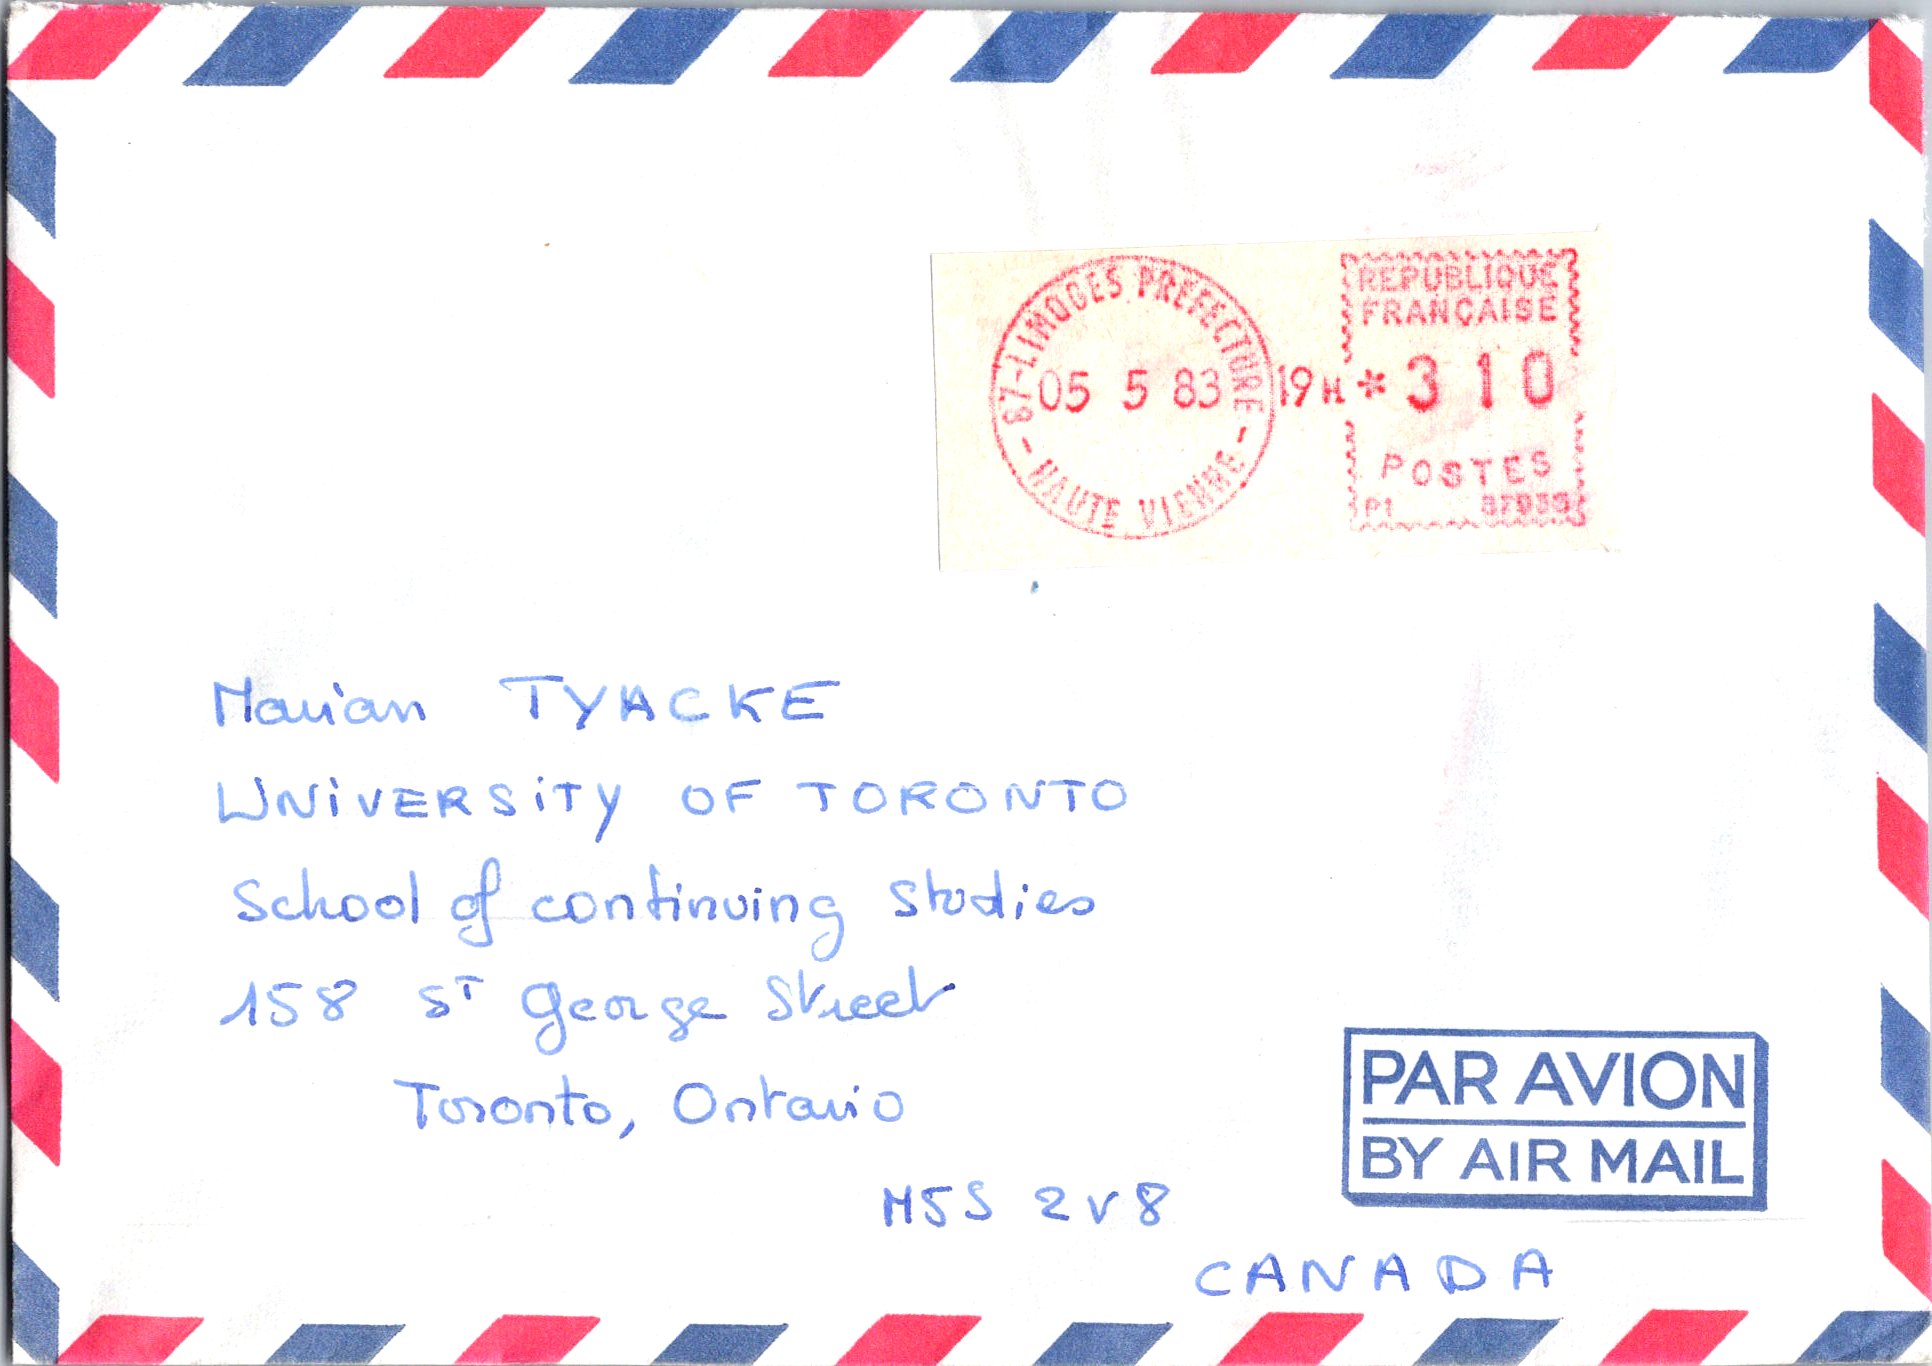 87-LIMOGES PREFECTURE
05 5 83
- HAUTE VIENNE -
19H
REPUBLIQUE
FRANÇAISE
* 3 10
POSTES
P1
Marian TYACKE
UNiVERSiTY OF TORONTO
School of continuing Studies
158 ST George Street
Toronto, Ontario
M5S 2V8
CANADA
PAR AVION
BY AIR MAIL